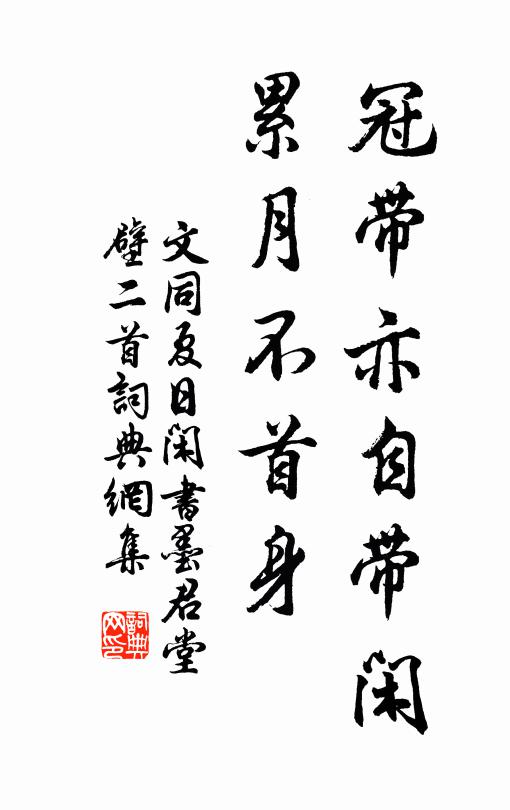 冠带亦自带閑
累月不首身
文同夏日閑書墨君堂
壁二首詞典網集
詞典網印